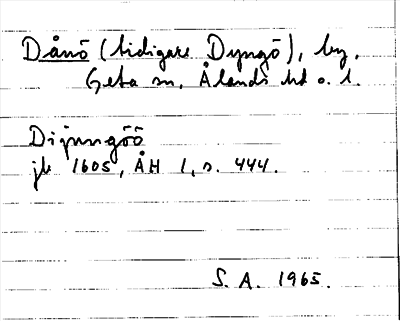 Dånö (tidigare Dyngö), by.
Geta sn, Ålands hd o. l.
Dijnngöö
jb 1605, ÅH 1, s. 444.
S. A. 1965.